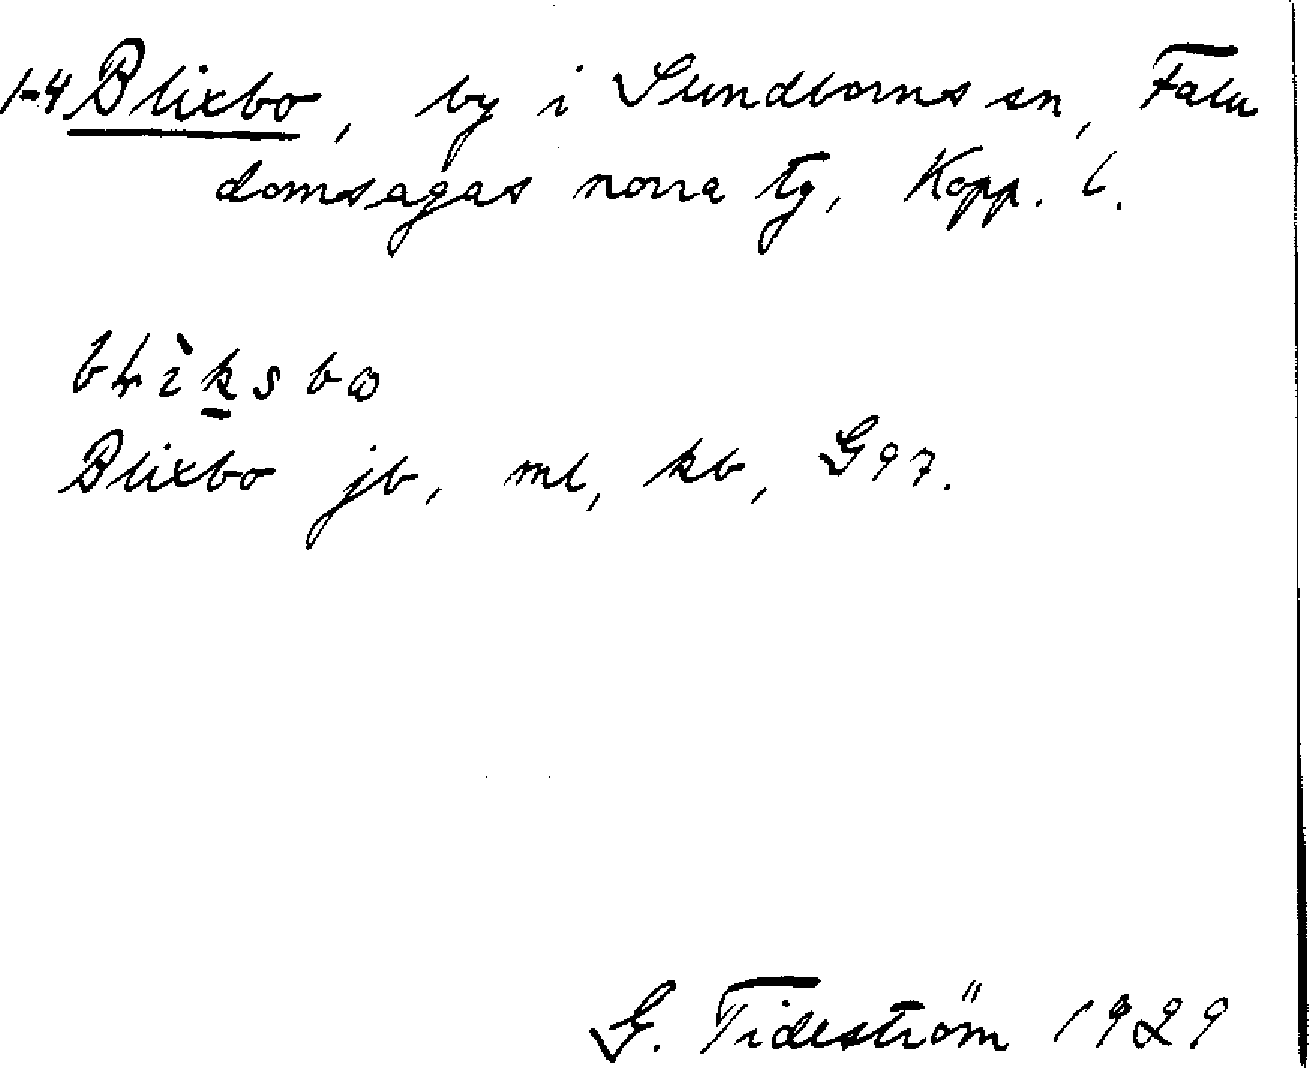 1-4 Blixbo, by i Sundborns sn, Falu
domsagas norra tg, Kopp. l.
Blixbo jb, ml, kb, G97.
G. Tideström 1929